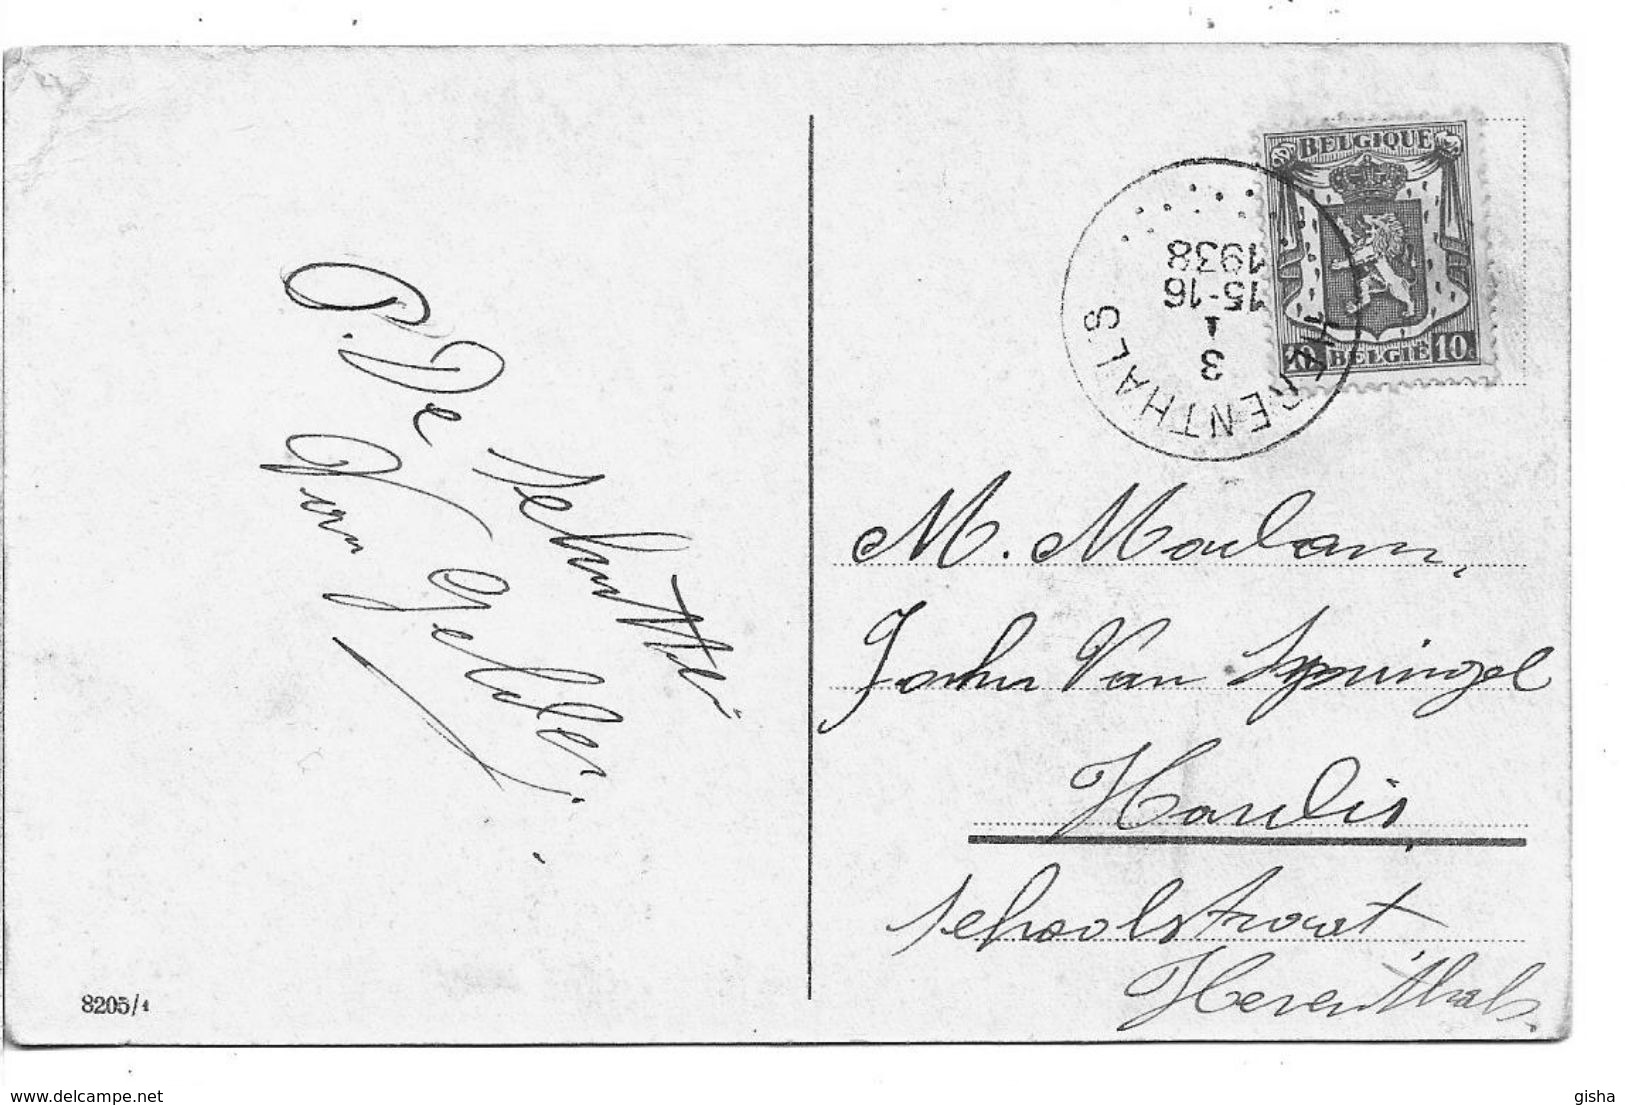 BELGIQUE
10c BELGIË 10c
HERENTHALS
3
1
15-16
1938
P. De Schutter
Van Gelder.
M. Madam,
Van Springel
schoolstraat
Herenthals.
8205/1
www.delcampe.net
gisha